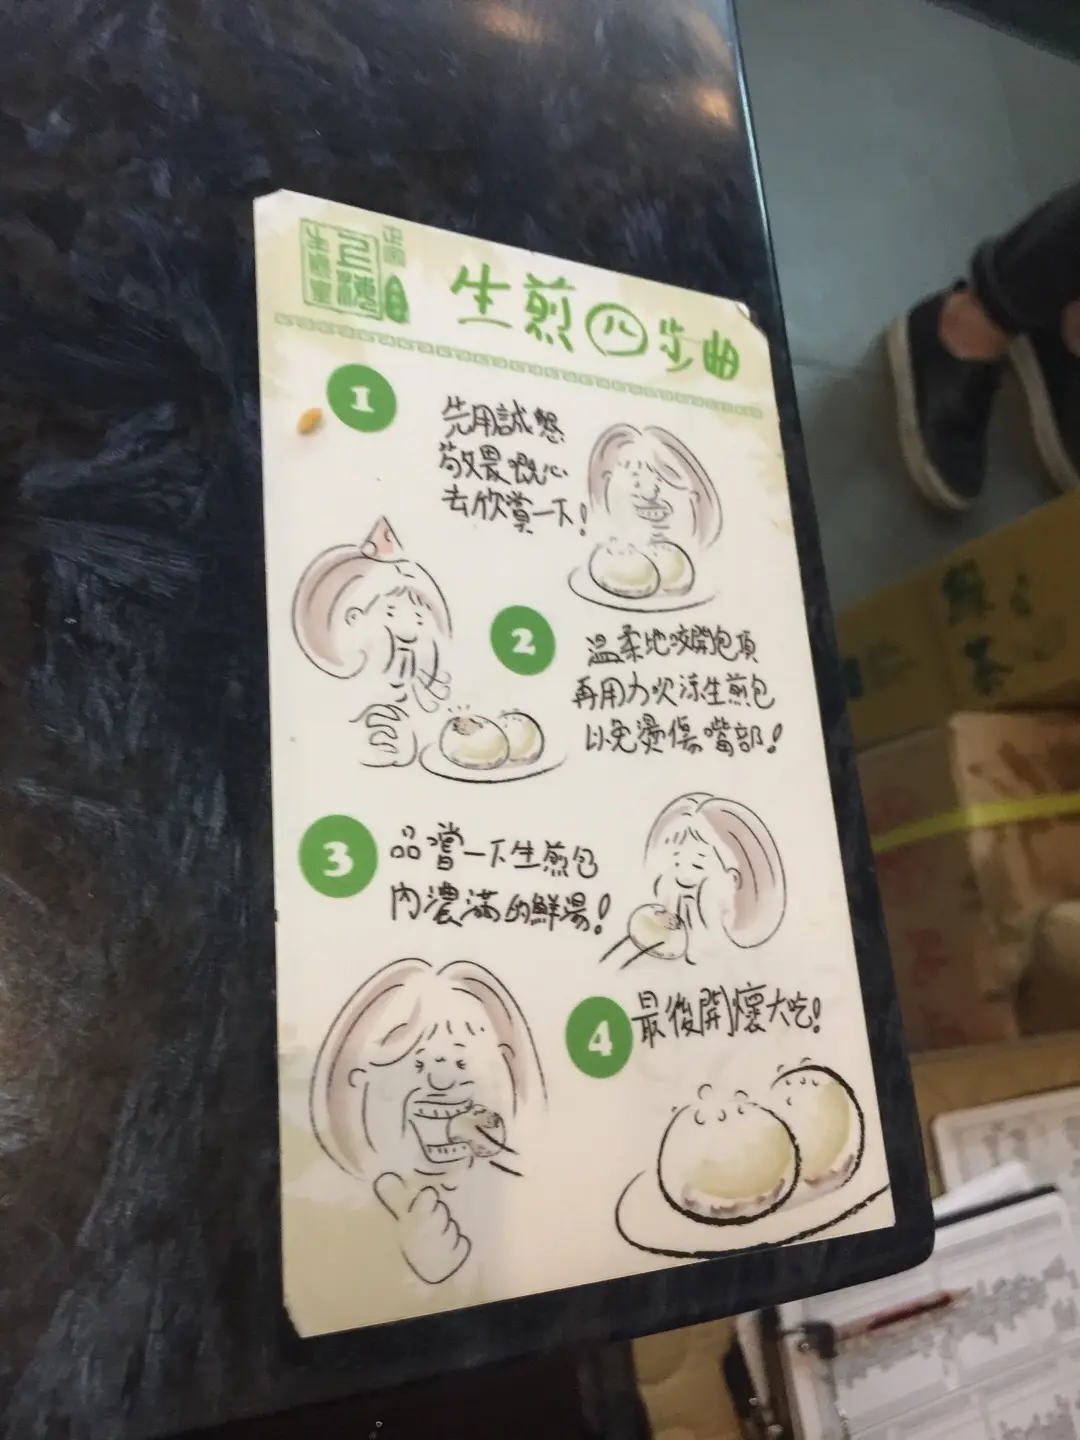 生煎四步曲
1
先用誠懇
敬畏嘅心
去欣賞一下!
2
溫柔地咬開包頂
再用力吹涼生煎包
以免燙傷嘴部!
3
品嚐一下生煎包
內濃滿的鮮湯!
4
最後開懷大吃!